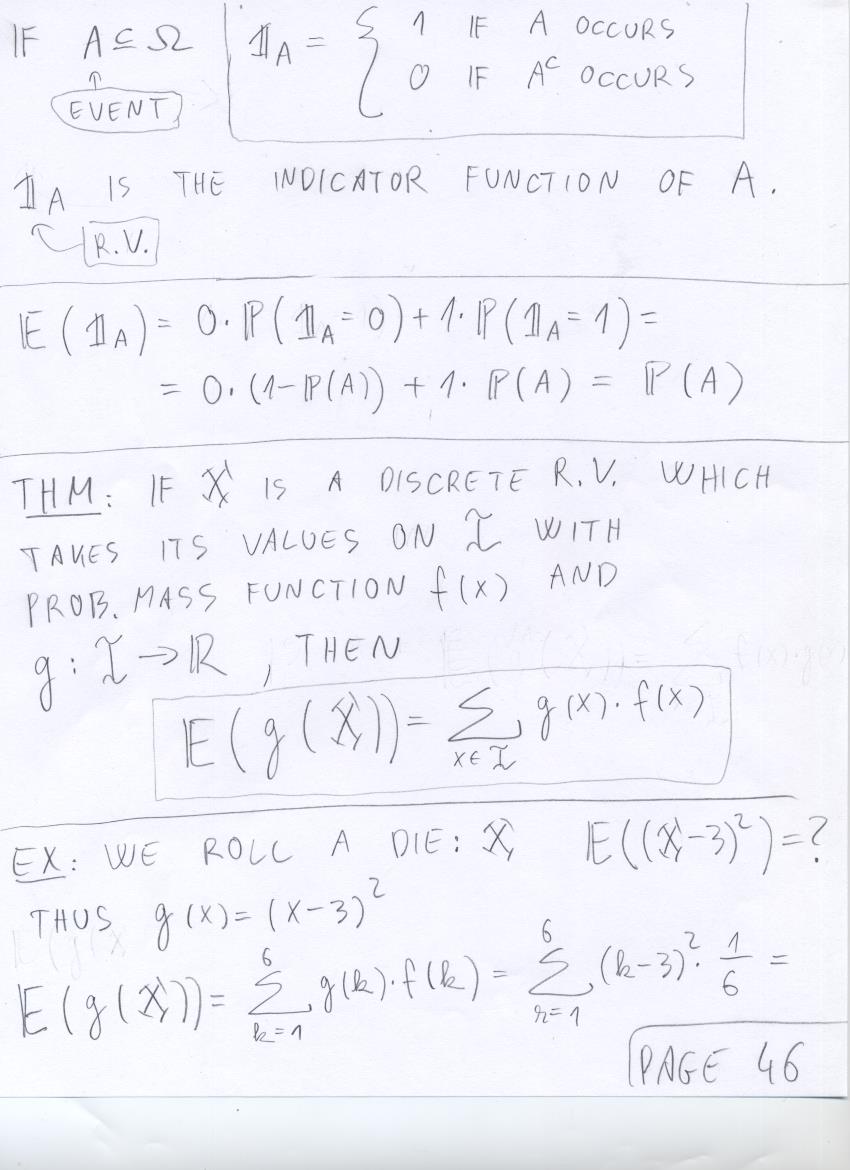 IF A ⊆ Ω 𝟙_A = { 1 IF A OCCURS
0 IF A^C OCCURS
EVENT
𝟙_A IS THE INDICATOR FUNCTION OF A.
R.V.
𝔼(𝟙_A) = 0·ℙ(𝟙_A = 0) + 1·ℙ(𝟙_A = 1) =
= 0·(1-ℙ(A)) + 1·ℙ(A) = ℙ(A)
THM: IF X IS A DISCRETE R.V. WHICH
TAKES ITS VALUES ON I WITH
PROB. MASS FUNCTION f(x) AND
g: I → ℝ, THEN
𝔼(g(X)) = Σ_{x∈I} g(x)·f(x)
EX: WE ROLL A DIE: X 𝔼((X-3)²) = ?
THUS g(x) = (x-3)²
𝔼(g(X)) = Σ_{k=1}^{6} g(k)·f(k) = Σ_{r=1}^{6} (k-3)²·1/6 =
PAGE 46